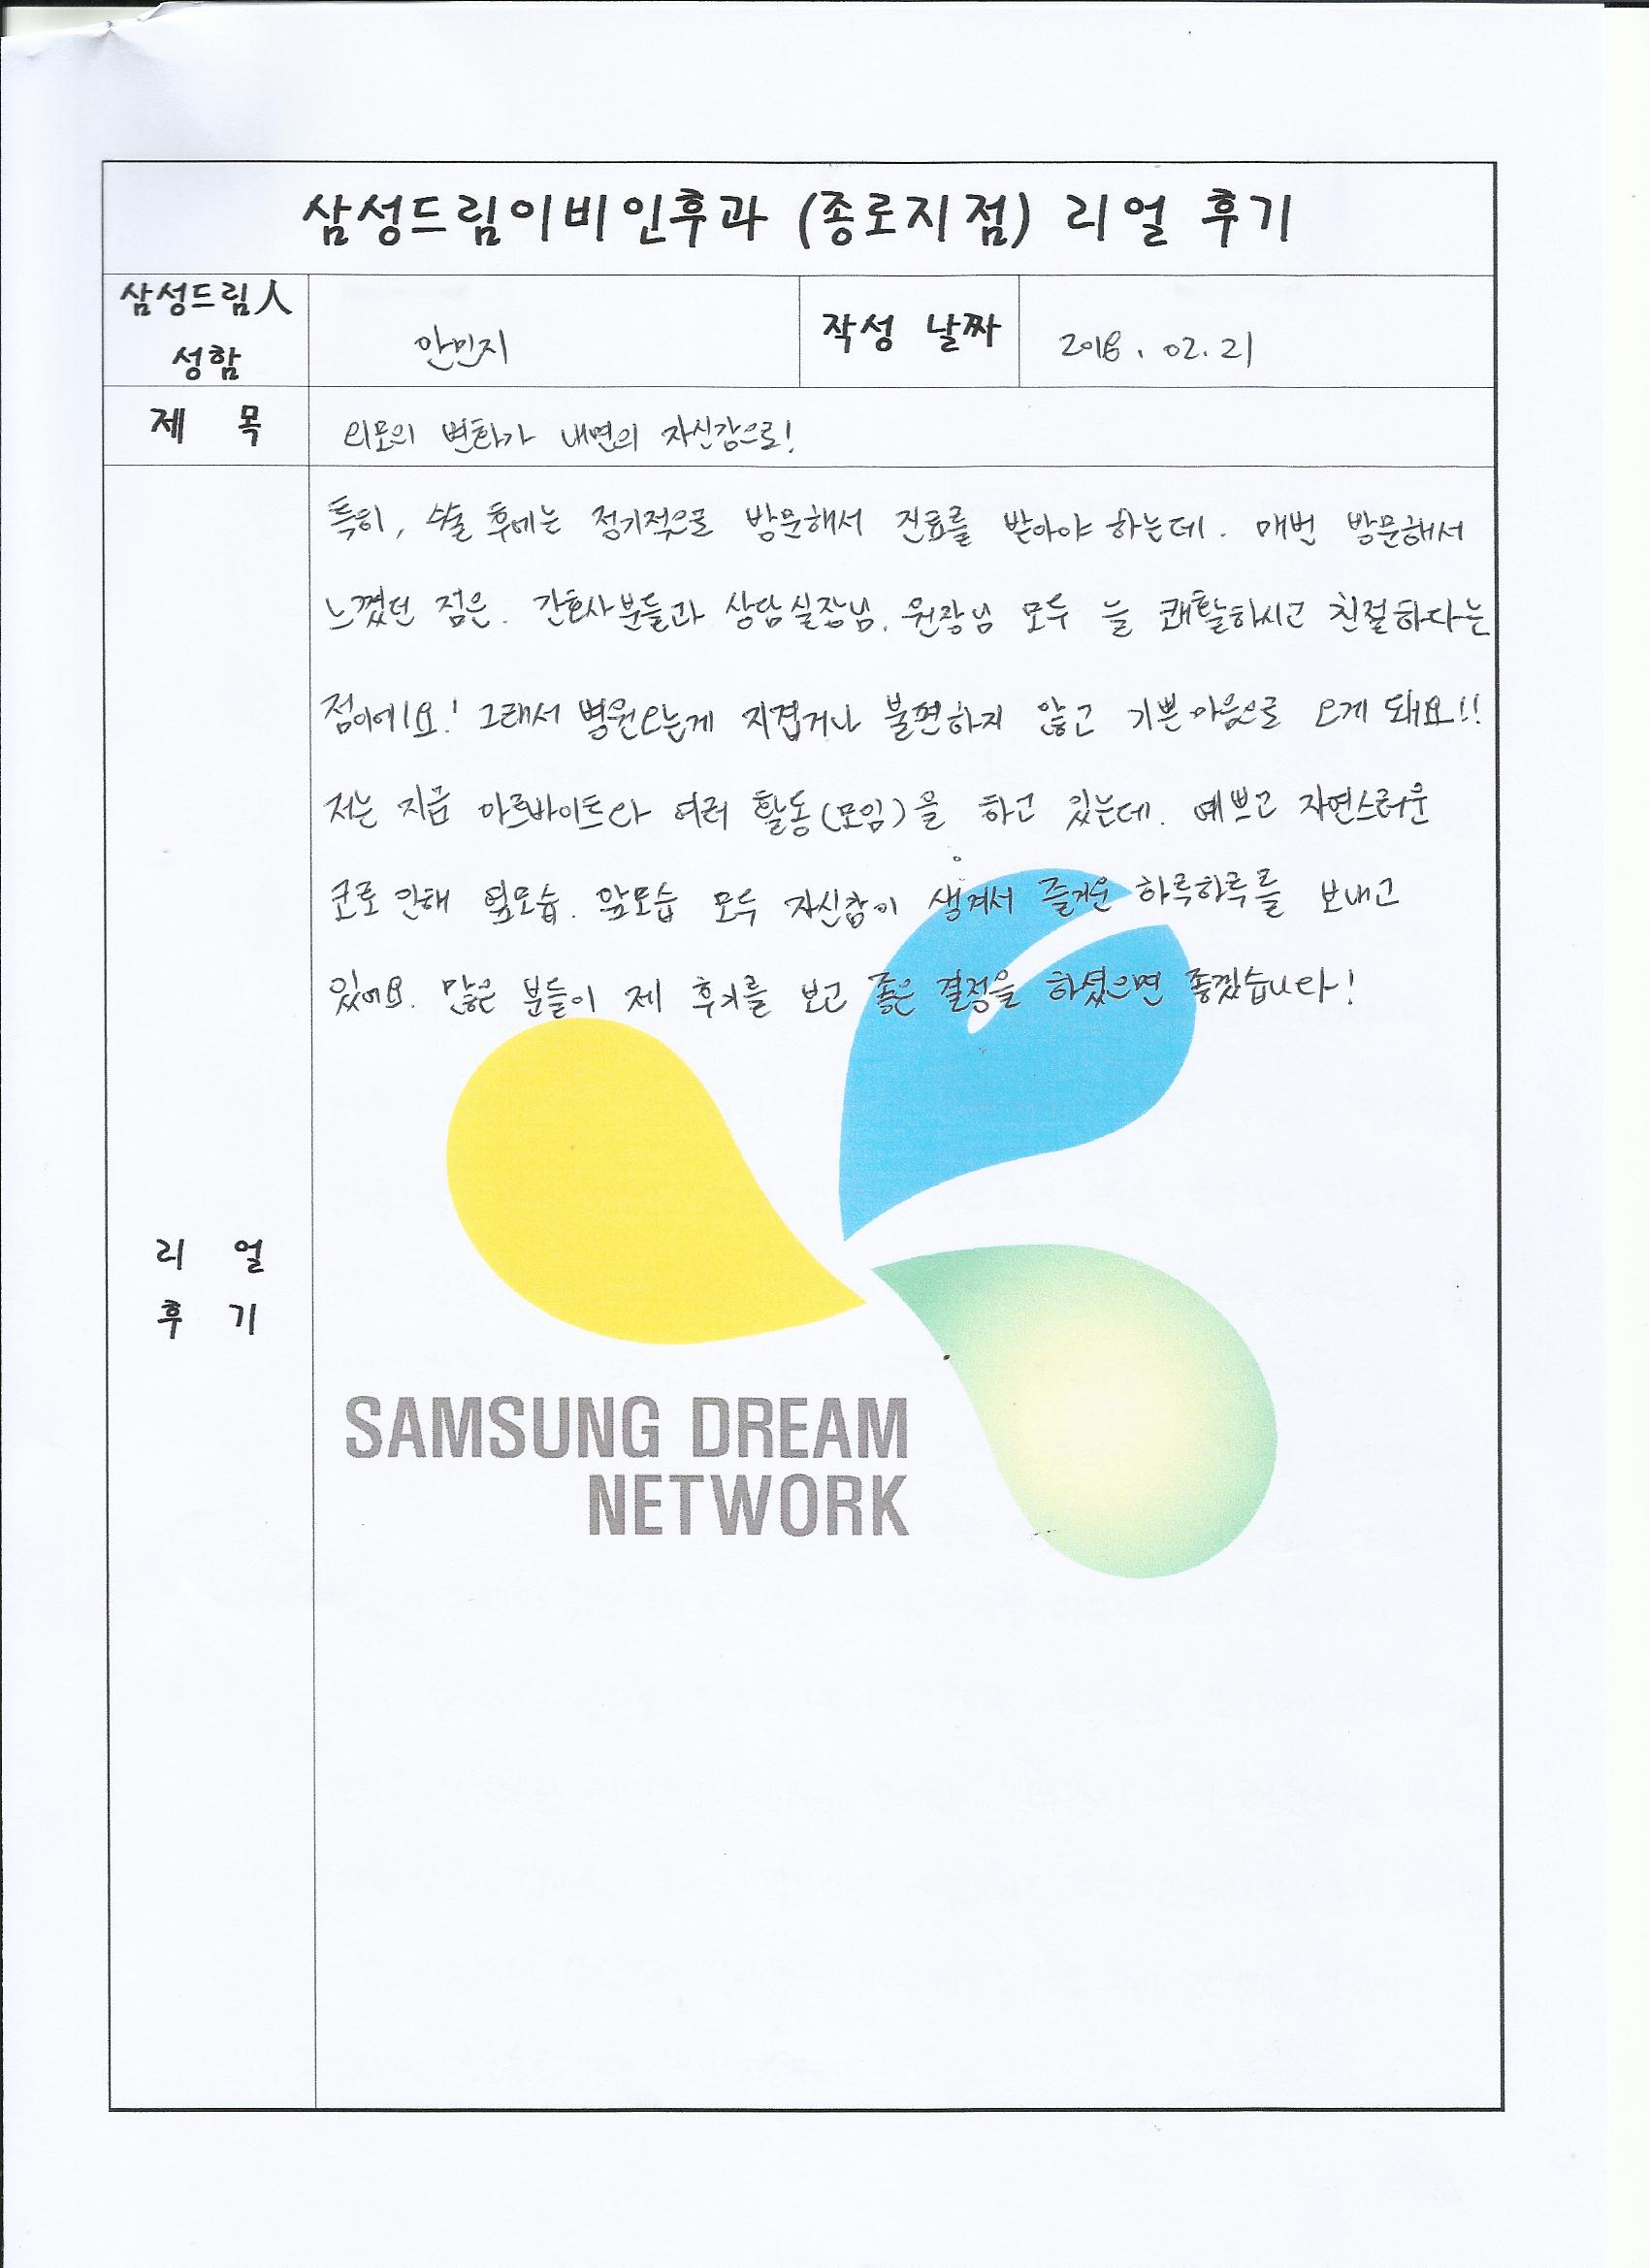 삼성드림이비인후과 (종로지점) 리얼 후기
삼성드림人
성함
안민지
작성 날짜
2018. 02. 21
제 목
외모의 변화가 내면의 자신감으로!
특히, 수술 후에는 정기적으로 방문해서 진료를 받아야 하는데. 매번 방문해서
느꼈던 점은. 간호사분들과 상담실장님. 원장님 모두 늘 쾌활하시고 친절하다는
점이에요! 그래서 병원오는게 지겹거나 불편하지 않고 기쁜마음으로 오게 돼요!!
저는 지금 아르바이트와 여러 활동(모임)을 하고 있는데. 예쁘고 자연스러운
코로 인해 옆모습. 앞모습 모두 자신감이 생겨서 즐거운 하루하루를 보내고
있어요. 많은 분들이 제 후기를 보고 좋은 결정을 하셨으면 좋겠습니다!
리 얼
후 기
SAMSUNG DREAM
NETWORK